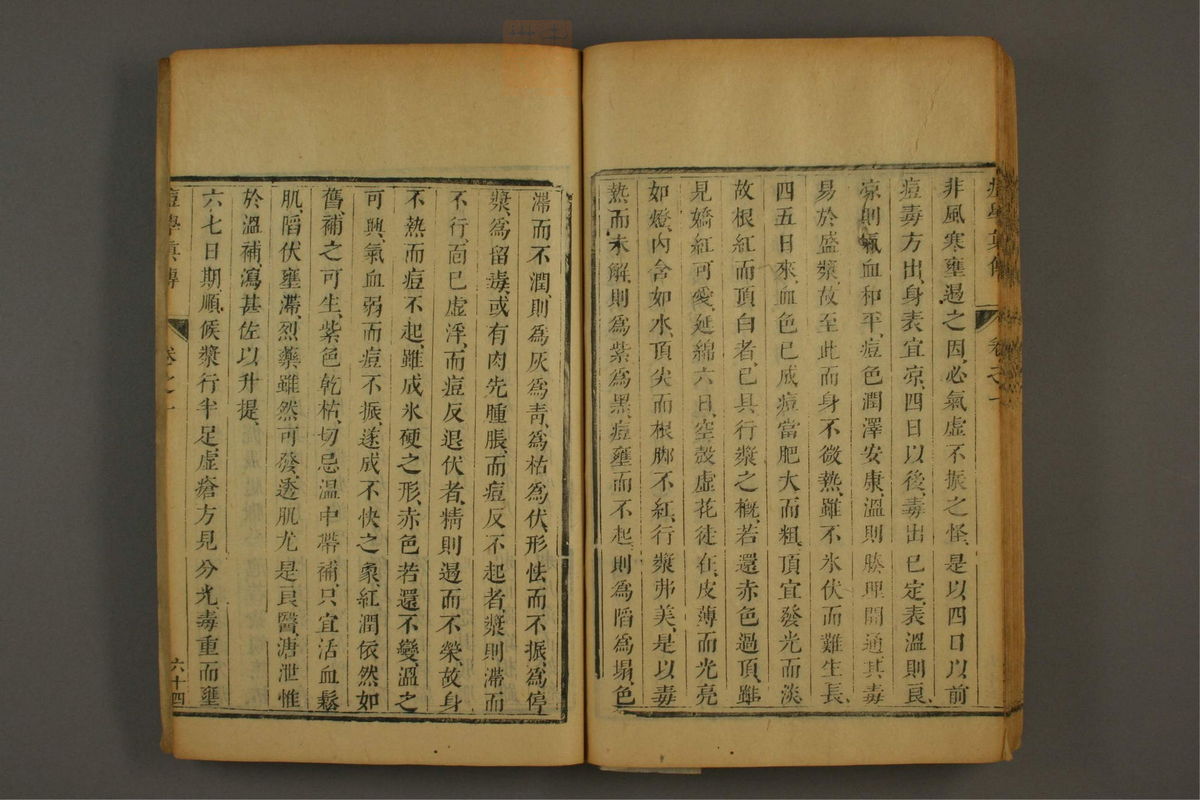 痘學真傳 卷之一
非風寒壅遏之因、必氣虛不振之怪、是以四日以前
痘毒方出、身表宜凉、四日以後、毒出已定、表溫則良
凉則氣血和平、痘色潤澤安康、溫則腠理開通、其毒
易於盛漿、故至此而身不微熱、雖不氷伏而難生長、
四五日來、血色已成、痘當肥大而粗、頂宜發光而淡
故根紅而頂白者、已具行漿之槪、若還赤色過頂、雖
見嬌紅可愛、延綿六日、空殼虛花徒在、皮薄而光亮
如燈、內含如水、頂尖而根脚不紅、行漿弗美、是以毒
熱而未解、則為紫為黑、痘壅而不起、則為陷為塌、色
滯而不潤、則為灰為青、為枯為伏、形怯而不振、為停
漿、為留毒、或有肉先腫脹、而痘反不起者、漿則滯而
不行、面已虛浮、而痘反退伏者、精則遏而不榮、故身
不熱而痘不起、雖成氷硬之形、赤色若還不變、溫之
可興、氣血弱而痘不振、遂成不快之象、紅潤依然如
舊、補之可生、紫色乾枯、切忌溫中帶補、只宜活血鬆
肌、陷伏壅滯、烈藥雖然可發、透肌尤是良醫、溏泄惟
於溫補、瀉甚佐以升提、
六七日期、順候漿行半足、虛瘡方見分光、毒重而壅
痘學真傳 卷之一 六十四